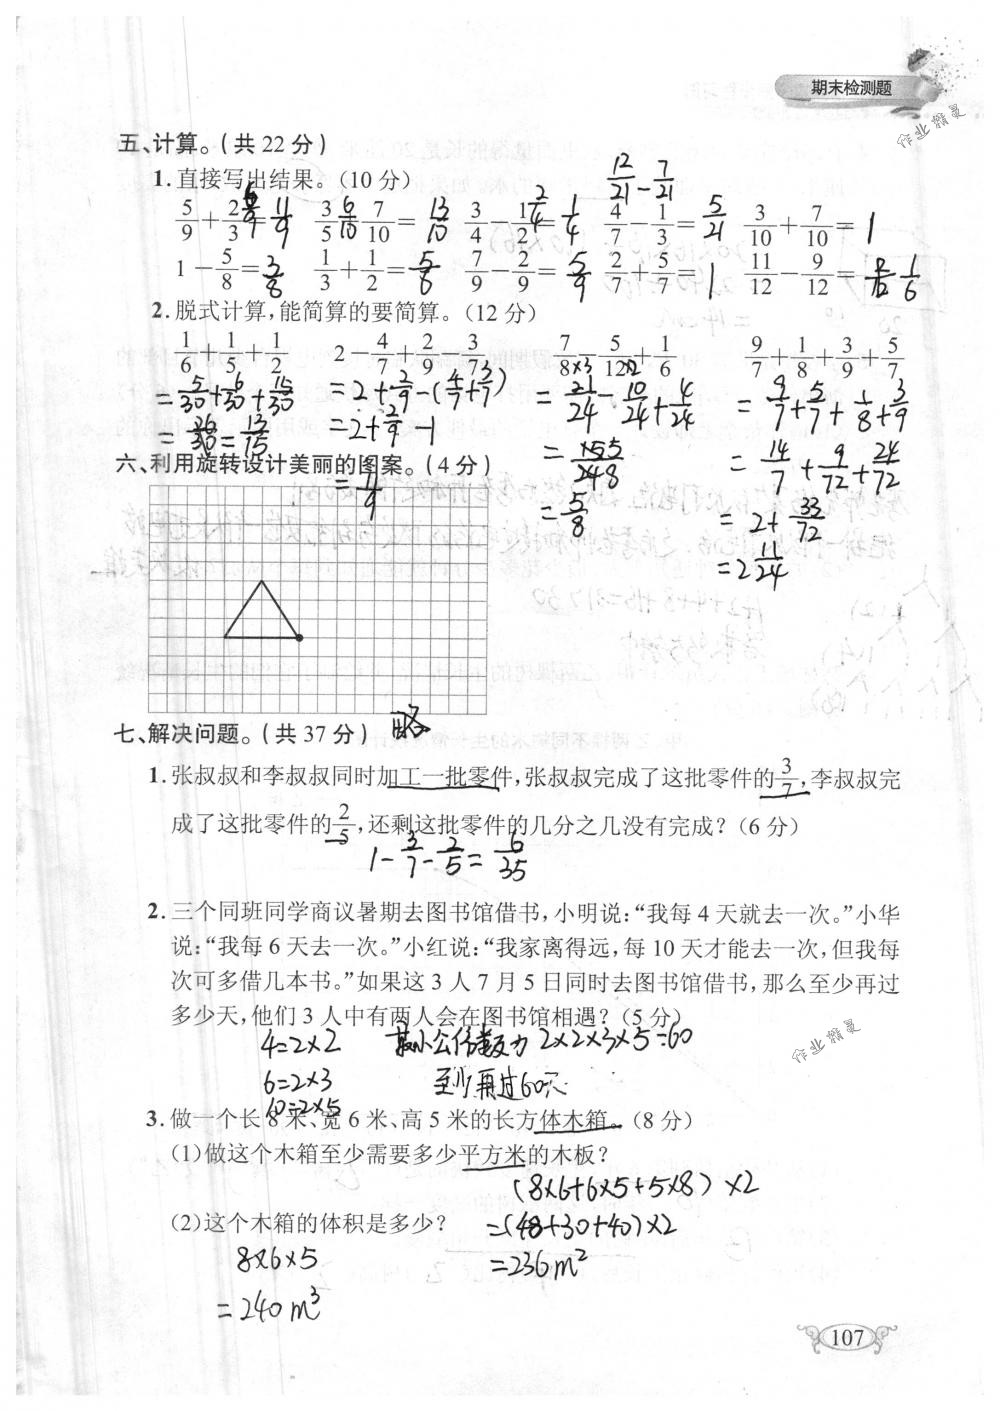 期末检测题
作业精灵
五、计算。(共22分)
12/21-7/21
1.直接写出结果。(10分)
5/9+2/3=11/9 3/5+7/10=13/10 3/4-1/2=1/4 4/7-1/3=5/21 3/10+7/10=1
1-5/8=3/8 1/3+1/2=5/6 7/9-2/9=5/9 2/7+5/7=1 11/12-9/12=2/12 1/6
2.脱式计算,能简算的要简算。(12分)
1/6+1/5+1/2 2-4/7+2/9-3/7 7/8-5/12+1/6 9/7+1/8+3/9+5/7
=5/30+6/30+15/30 =2+2/9-(4/7+3/7) =21/24-10/24+4/24 =9/7+5/7+1/8+3/9
=26/30=13/15 =2+2/9-1 =15/24 5/8 =14/7+9/72+24/72
=11/9 =5/8 =2+33/72
=2 11/24
六、利用旋转设计美丽的图案。(4分)
略
七、解决问题。(共37分)
1.张叔叔和李叔叔同时加工一批零件,张叔叔完成了这批零件的3/7,李叔叔完
成了这批零件的2/5,还剩这批零件的几分之几没有完成?(6分)
1-3/7-2/5=6/35
2.三个同班同学商议暑期去图书馆借书,小明说:“我每4天就去一次。”小华
说:“我每6天去一次。”小红说:“我家离得远,每10天才能去一次,但我每
次可多借几本书。”如果这3人7月5日同时去图书馆借书,那么至少再过
多少天,他们3人中有两人会在图书馆相遇?(5分)
4=2×2 最小公倍数为2×2×3×5=60
6=2×3 至少再过60天
10=2×5
作业精灵
3.做一个长8米、宽6米、高5米的长方体木箱。(8分)
(1)做这个木箱至少需要多少平方米的木板?
(8×6+6×5+5×8)×2
=(48+30+40)×2
=236m²
(2)这个木箱的体积是多少?
8×6×5
=240m³
107